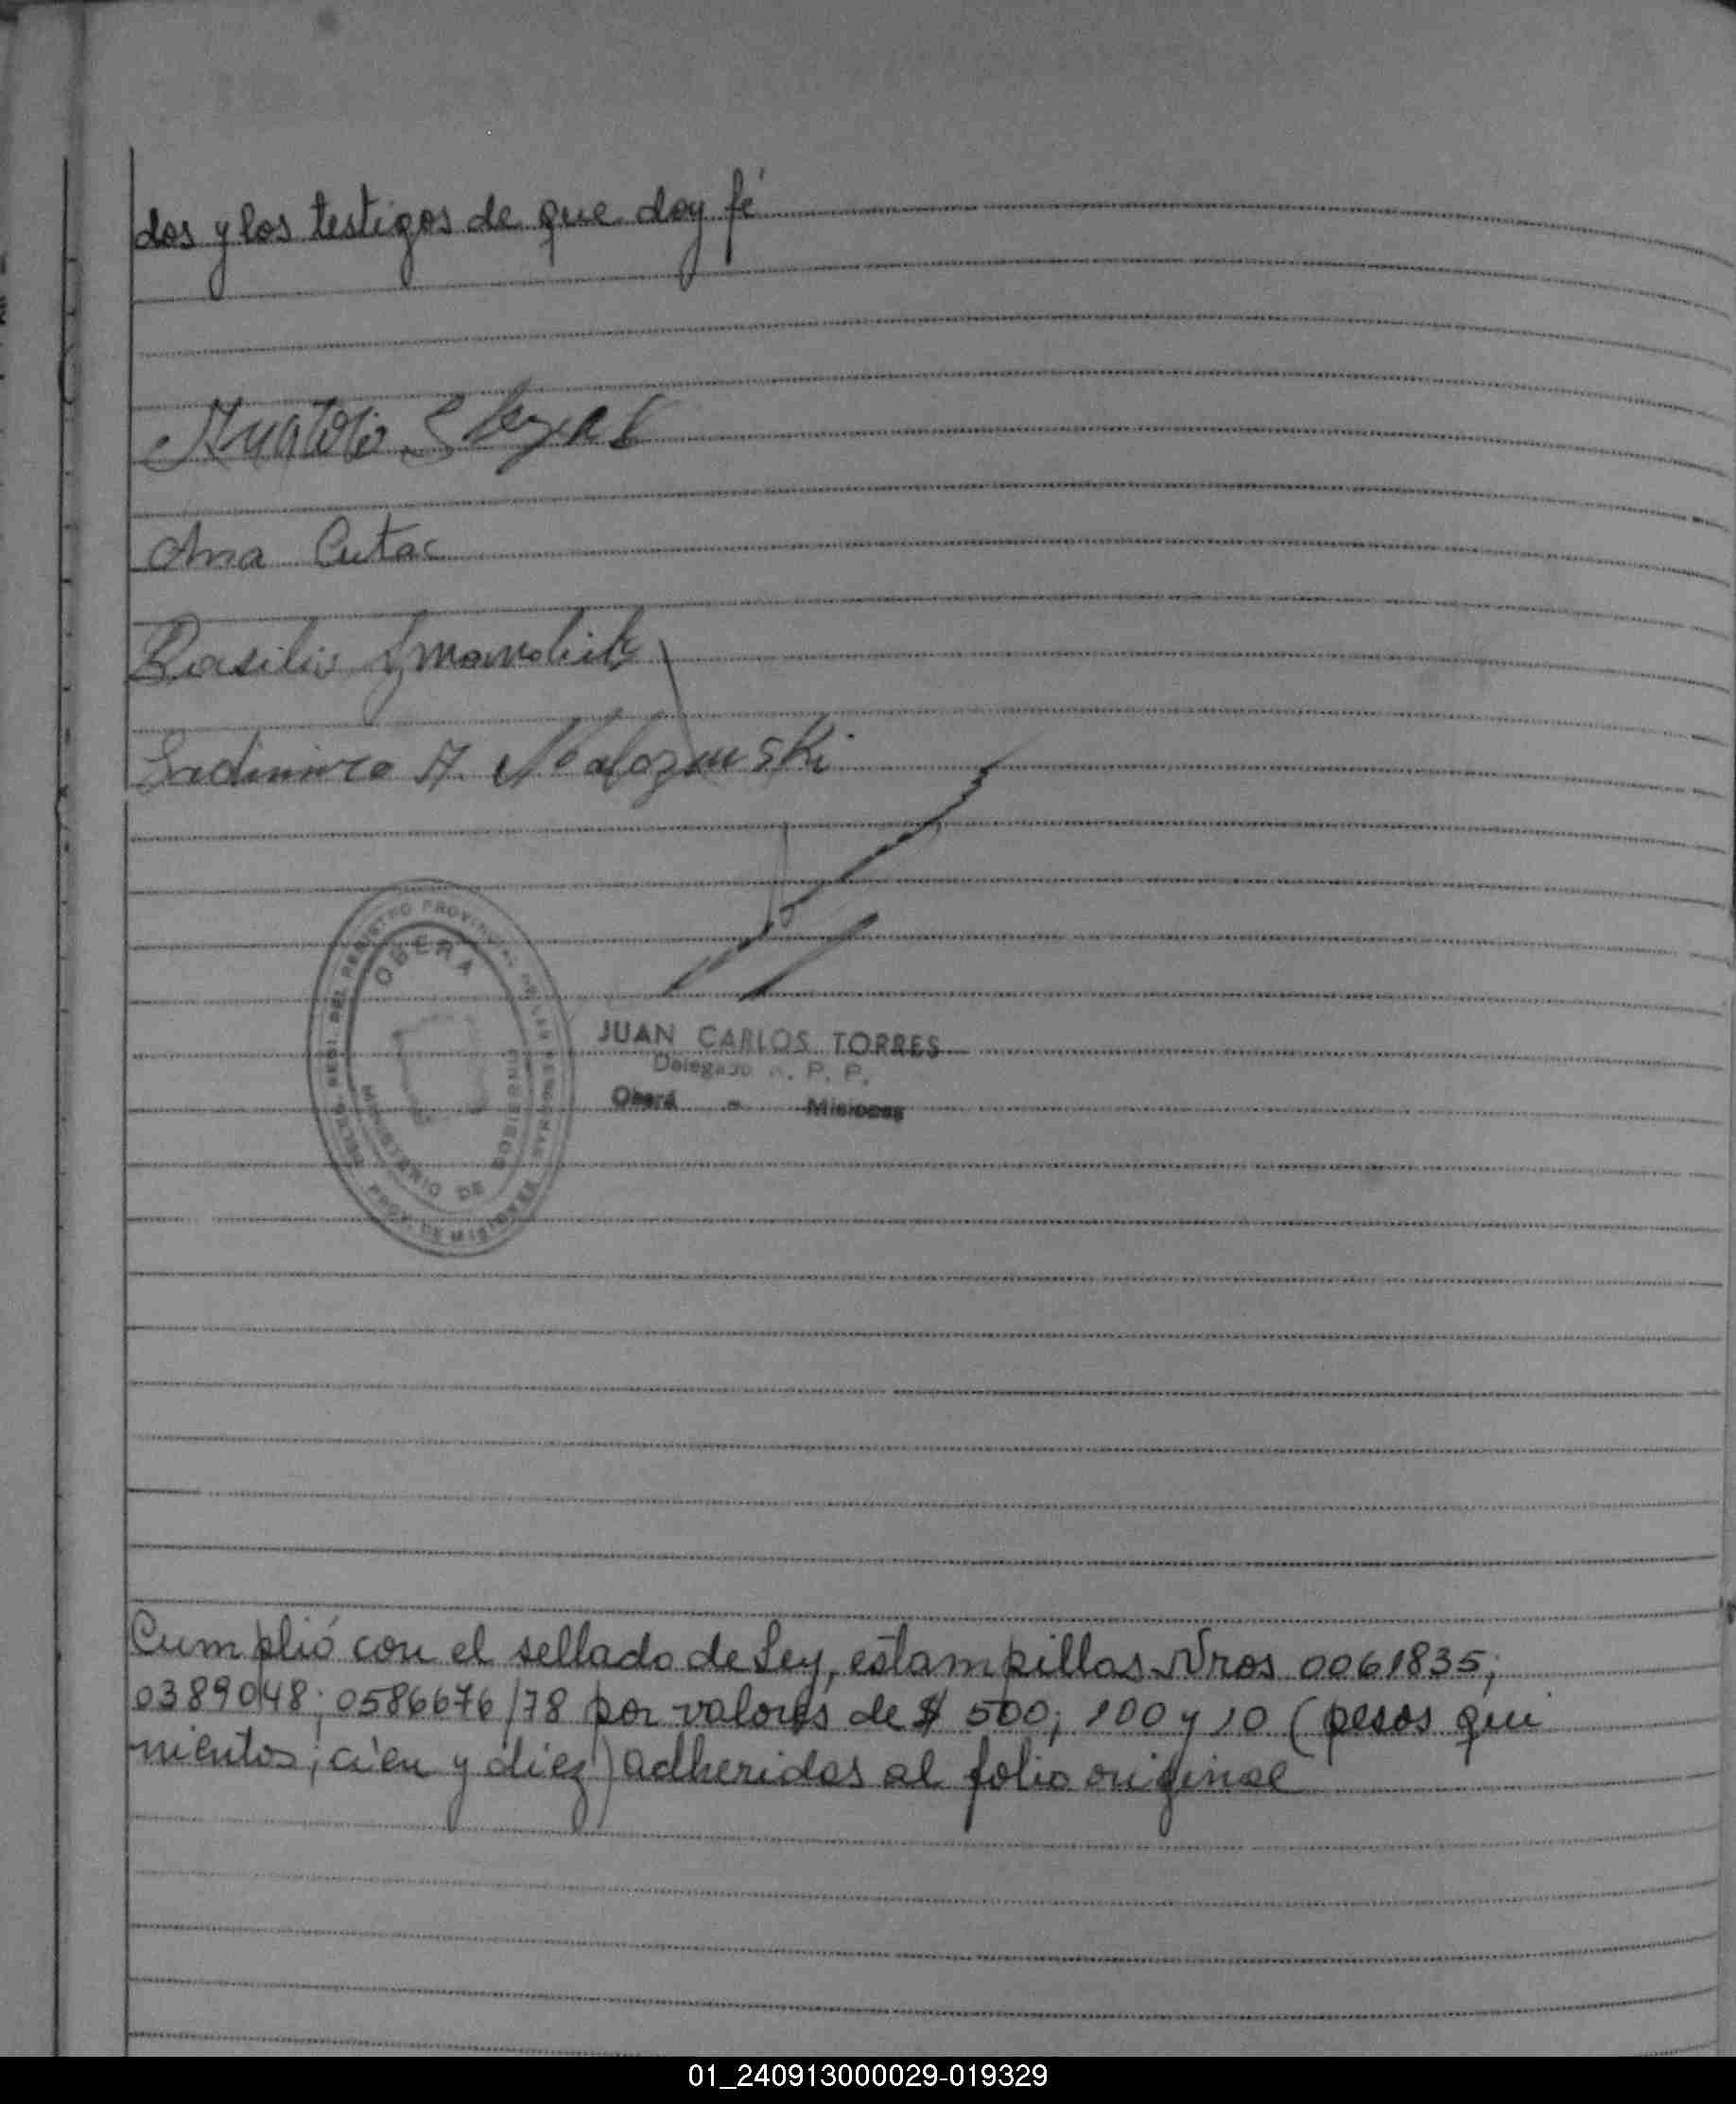 dos y los testigos de que doy fé
Ana Cutac
Basilio
Ladimiro A.
DEL REGISTRO PROVINCIAL DE LAS PERSONAS
OBERA
MINISTERIO DE GOBIERNO
PROV. DE MISIONES
JUAN CARLOS TORRES
Delegado R. P. P.
Oberá - Misiones
Cumplió con el sellado de Ley, estampillas Nros 0061835;
0389048; 0586676/78 por valores de $ 500; 100 y 10 (pesos qui
nientos; cien y diez) adheridas al folio original
01_240913000029-019329